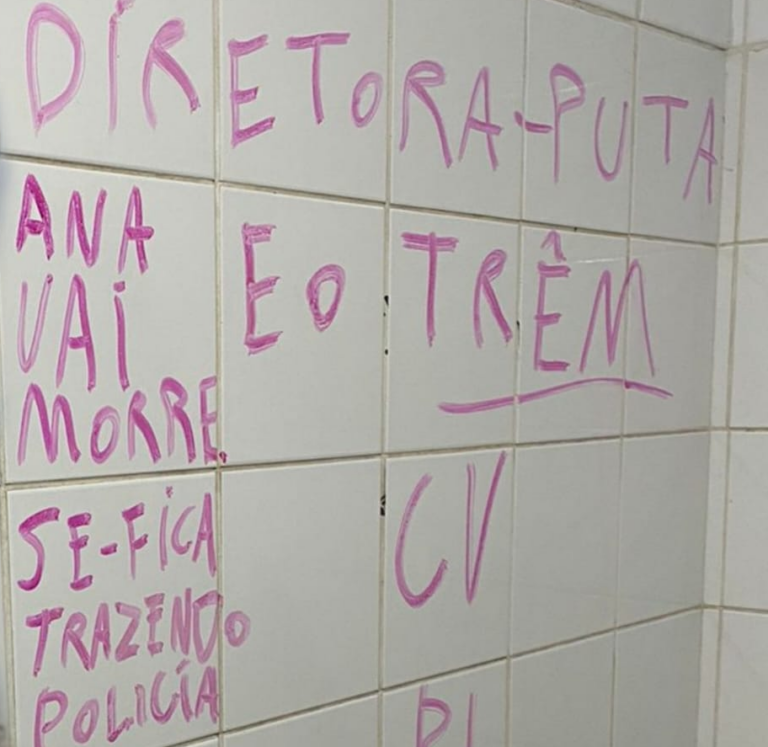 DIRETORA-PUTA
ANA
VAI
MORRE
E O TRÊM
SE-FICA
TRAZENDO
POLICÍA
CV